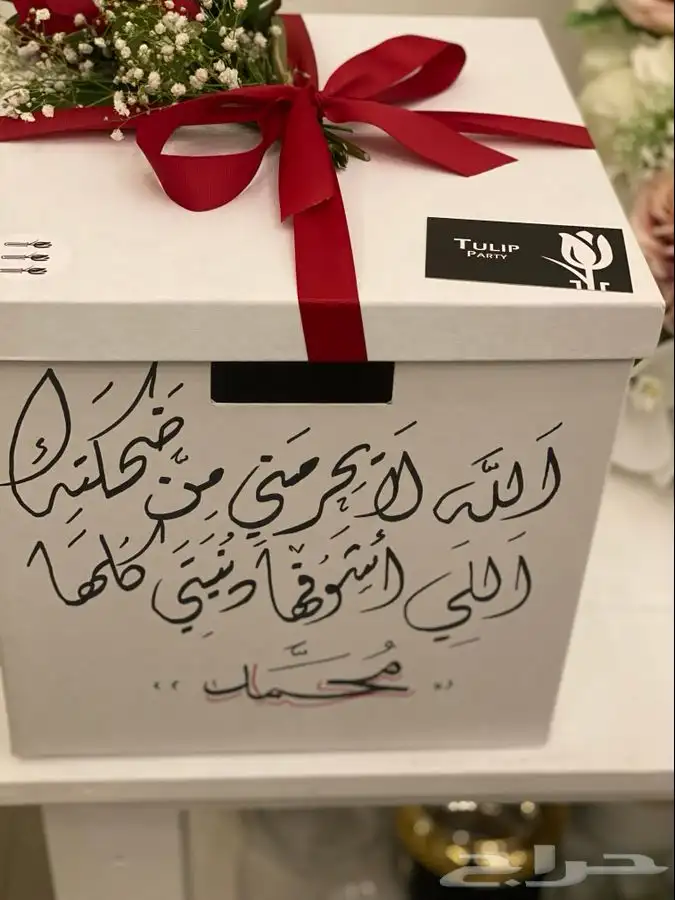 TULIP
PARTY
الله لا يحرمني من ضحكتك
اللي أشوفها دنيتي كلها
محمد
حراج